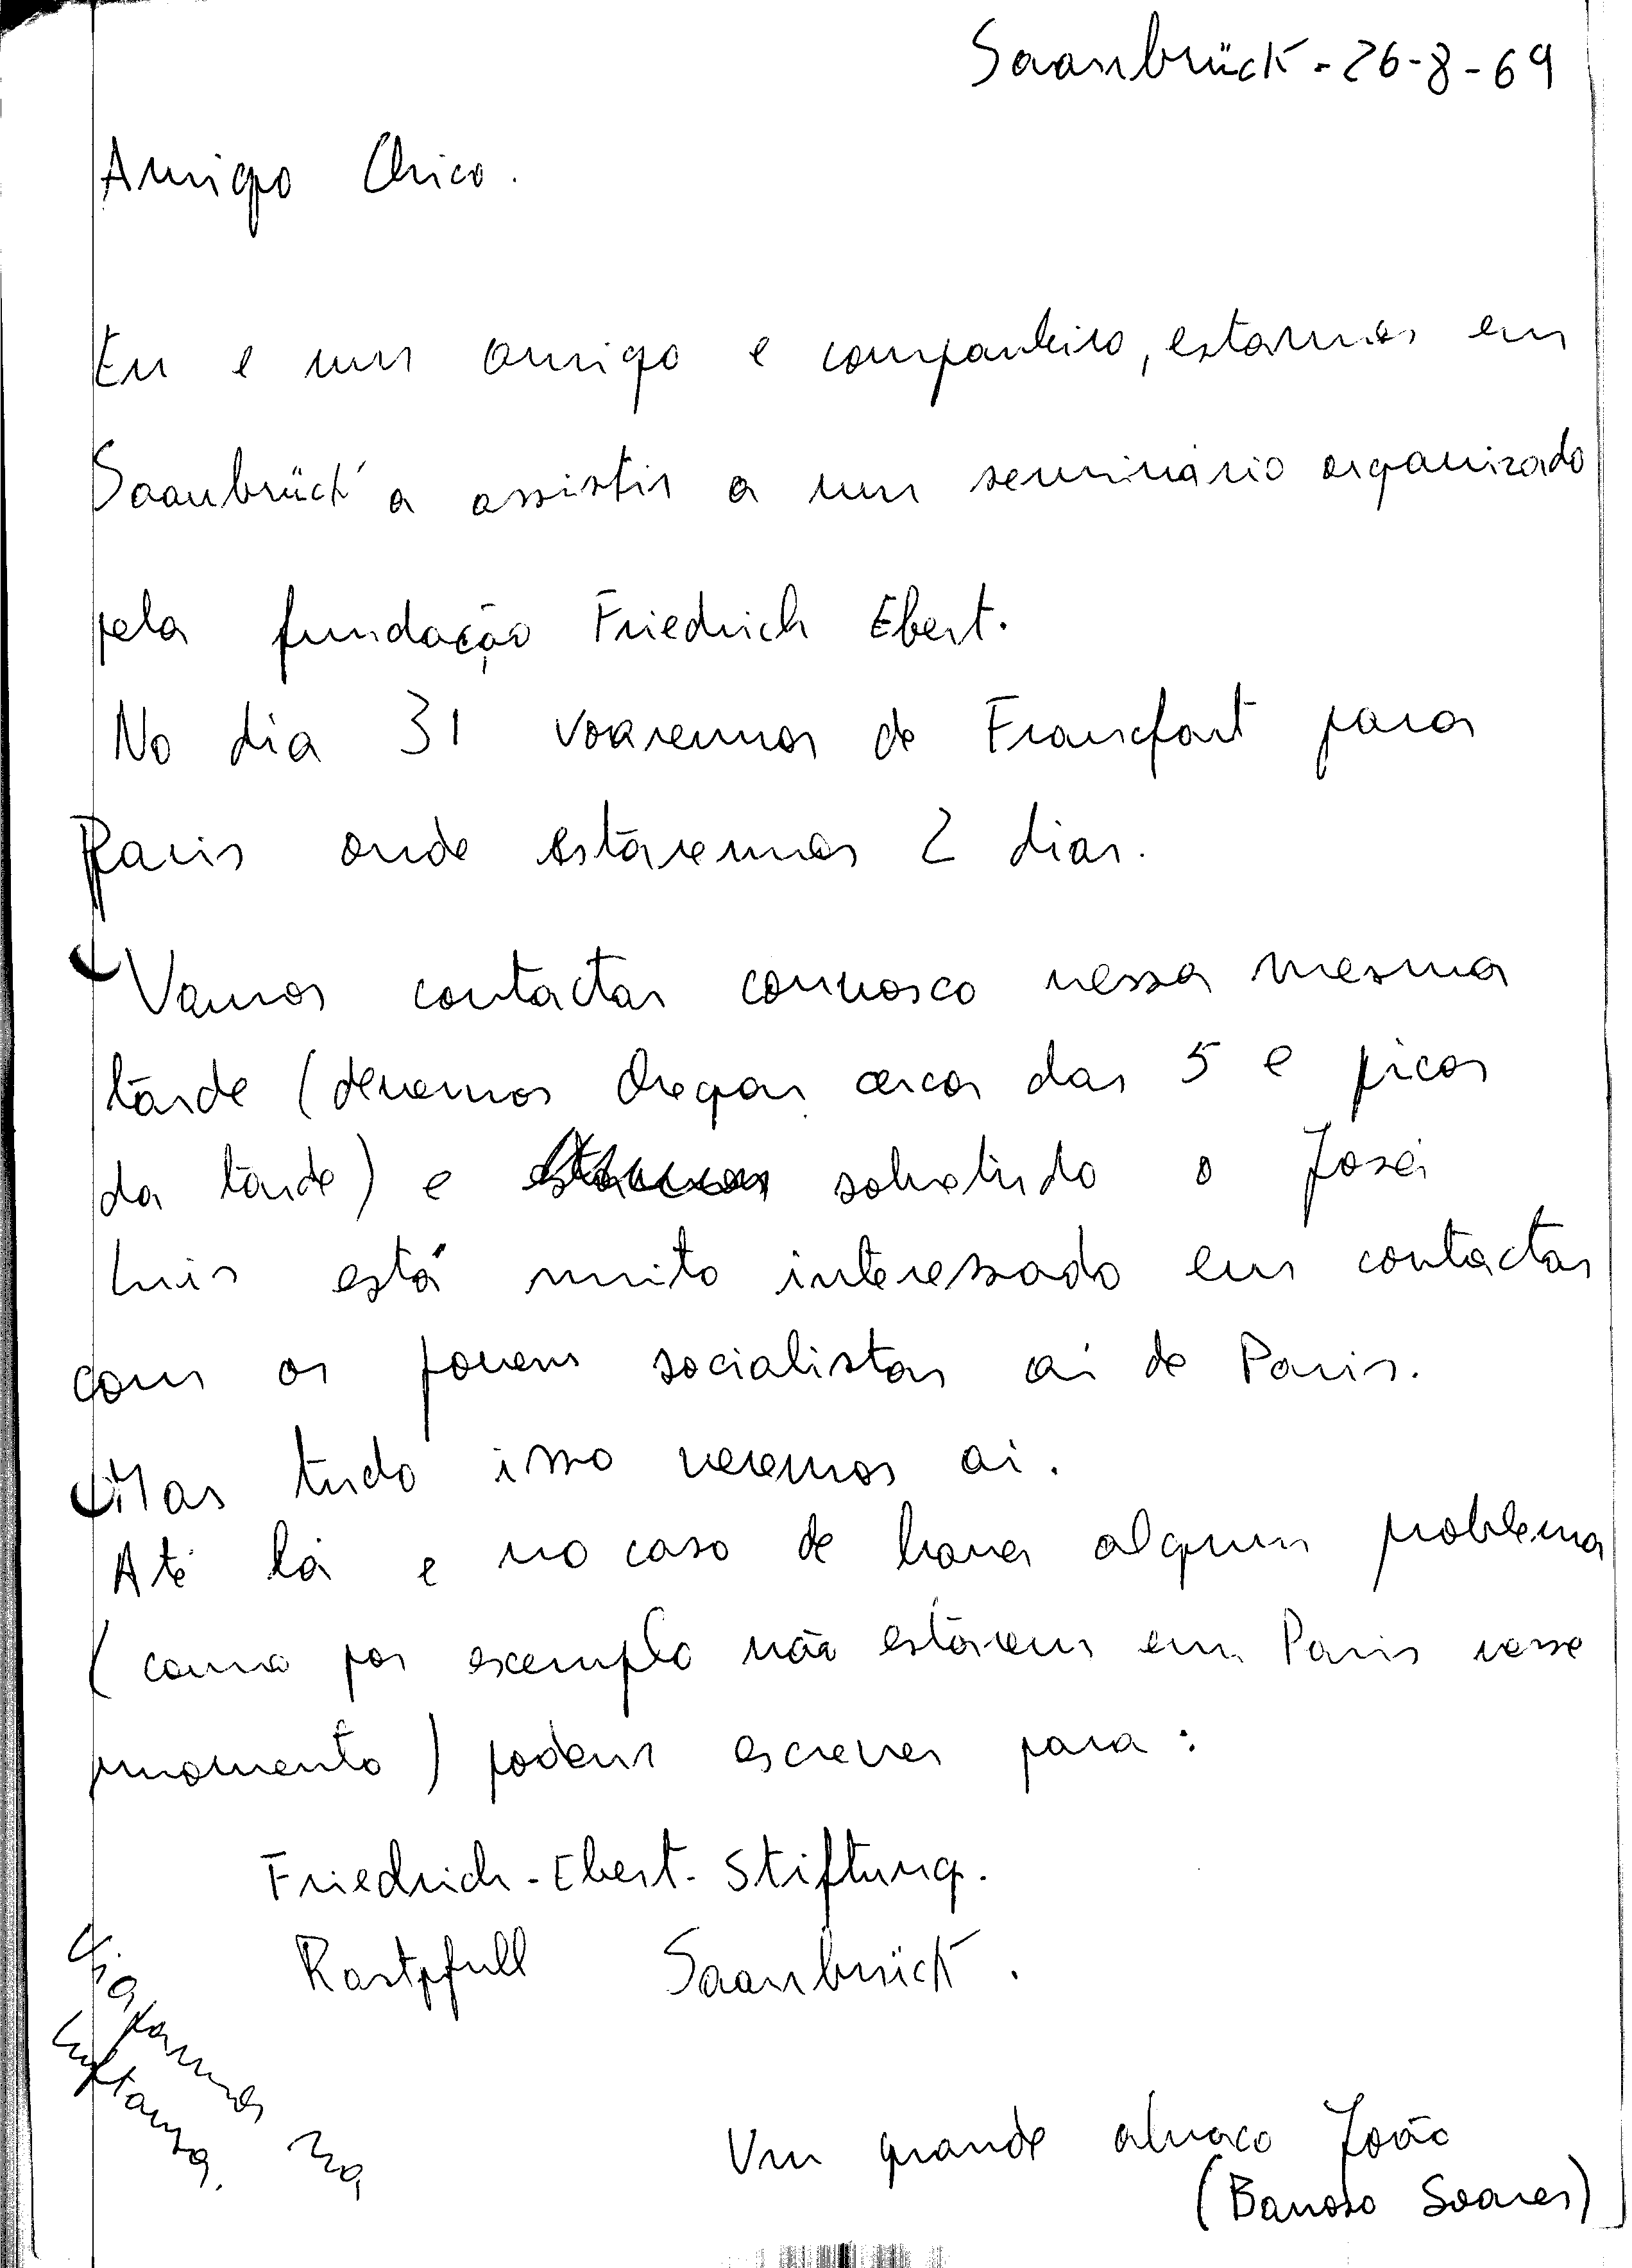 Saarbrück - 26-8-69
Amigo Chico.
Eu e um amigo e companheiro, estamos em
Saarbrück a assistir a um seminário organizado
pela fundação Friedrich Ebert.
No dia 31 voaremos de Francfort para
Paris onde estaremos 2 dias.
Vamos contactar connosco nessa mesma
tarde (devemos chegar cerca das 5 e picos
da tarde) e sobretudo o José
Luis está muito interessado em contactar
com os jovens socialistas aí de Paris.
Mas tudo isso veremos aí.
Até lá e no caso de haver algum problema
(como por exemplo não estarem em Paris nesse
momento) podem escrever para:
Friedrich-Ebert-Stiftung.
Rastpfull Saarbrück.
Viajamos na
Luftansa.
Um grande abraço João
(Barroso Soares)